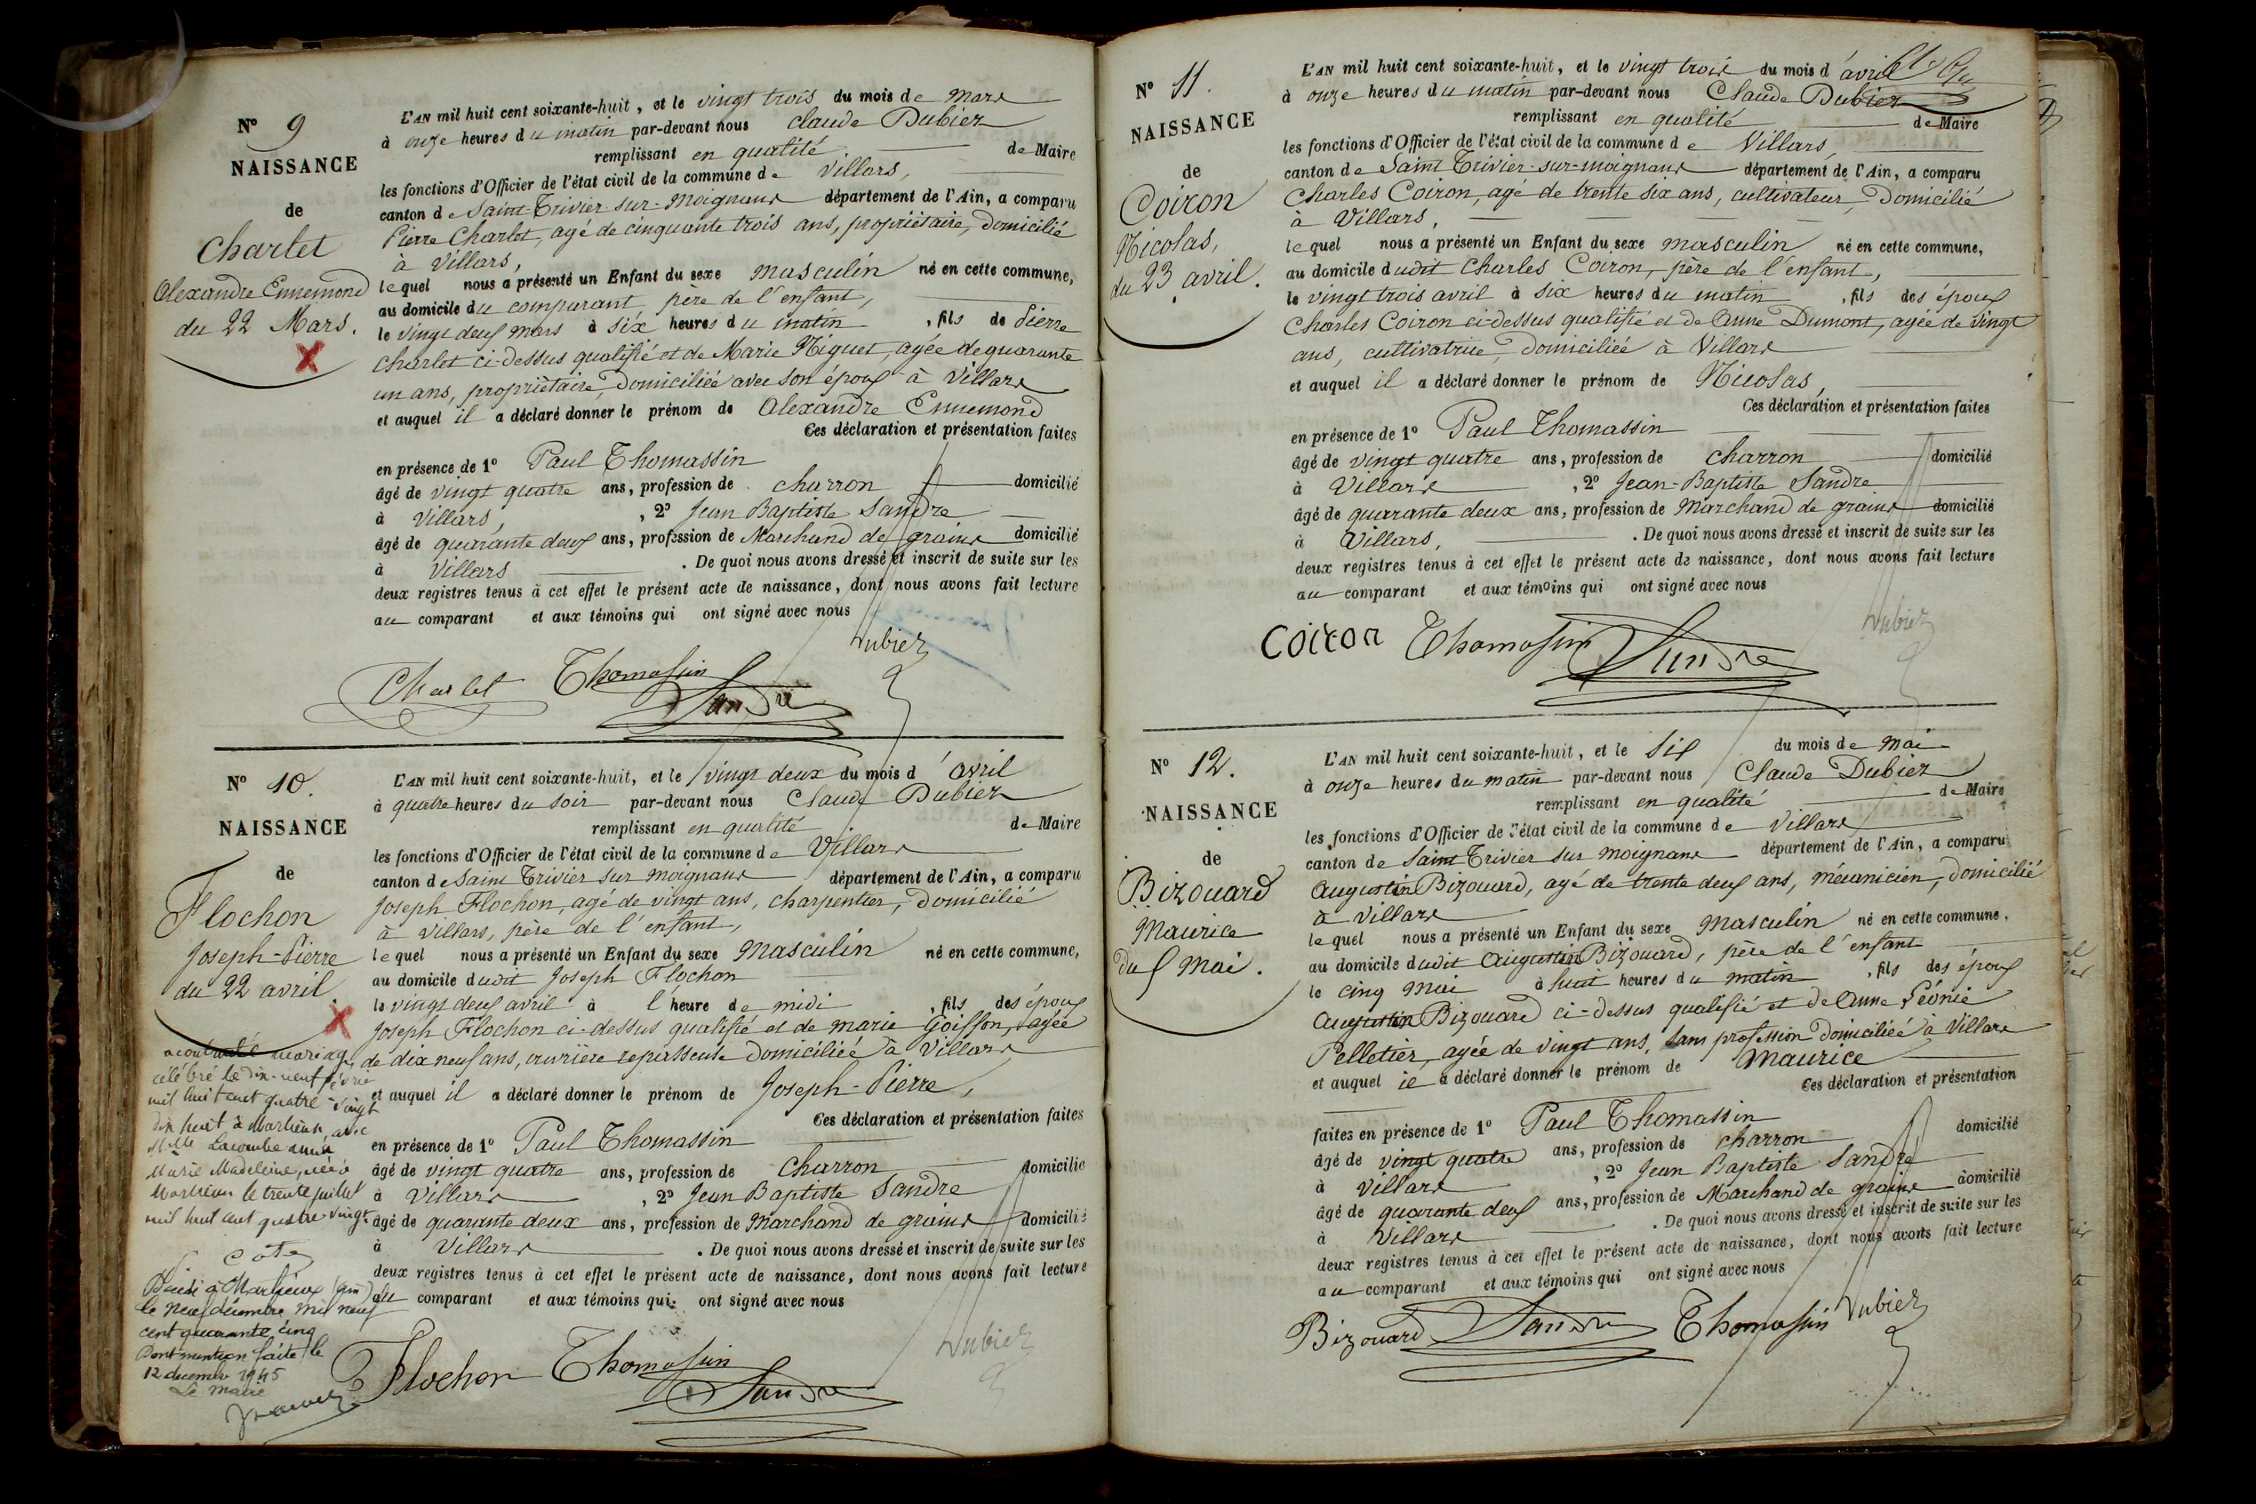 N° 9
NAISSANCE
de
Charlet
Alexandre Ennemond
du 22 Mars.
L'AN mil huit cent soixante-huit, et le vingt trois du mois de Mars
à onze heures du matin par-devant nous Claude Dubiez
remplissant en qualité de Maire
les fonctions d'Officier de l'état civil de la commune de Villars,
canton de Saint Trivier-sur-Moignans département de l'Ain, a comparu
Pierre Charlet, agé de cinquante trois ans, propriétaire, domicilié
à Villars,
lequel nous a présenté un Enfant du sexe masculin né en cette commune,
au domicile du comparant père de l'enfant,
le vingt deux mars à six heures du matin, fils de Pierre
Charlet ci-dessus qualifié et de Marie Niguet, agée de quarante
un ans, propriétaire, domiciliée avec son époux à Villars
et auquel il a déclaré donner le prénom de Alexandre Ennemond
Ces déclaration et présentation faites
en présence de 1° Paul Thomassin
âgé de vingt quatre ans, profession de charron domicilié
à Villars, , 2° Jean Baptiste Sandre
âgé de quarante deux ans, profession de Marchand de grains domicilié
à Villars . De quoi nous avons dressé et inscrit de suite sur les
deux registres tenus à cet effet le présent acte de naissance, dont nous avons fait lecture
au comparant et aux témoins qui ont signé avec nous
Dubiez
Charlet Thomassin
Sandre
N° 10.
NAISSANCE
de
Flochon
Joseph-Pierre
du 22 avril.
a contracté mariage
célébré le dix-neuf février
mil huit cent quatre-vingt
dix huit à Marlieux, avec
Melle Lacombe
Marie Madeleine, née à
Marlieux le trente juillet
mil huit cent quatre-vingt
Décédé à Marlieux (Ain)
le neuf décembre mil neuf
cent quarante cinq
Dont mention faite le
12 décembre 1945
Le maire
L'AN mil huit cent soixante-huit, et le vingt deux du mois d'avril
à quatre heures du soir par-devant nous Claude Dubiez
remplissant en qualité de Maire
les fonctions d'Officier de l'état civil de la commune de Villars
canton de Saint Trivier sur Moignans département de l'Ain, a comparu
Joseph Flochon, agé de vingt ans, charpentier, domicilié
à Villars, père de l'enfant,
lequel nous a présenté un Enfant du sexe Masculin né en cette commune,
au domicile dudit Joseph Flochon
le vingt deux avril à l'heure de midi, fils des époux
Joseph Flochon ci-dessus qualifié et de marie Goiffon, agée
de dix neuf ans, ouvrière repasseuse domiciliée à Villars
et auquel il a déclaré donner le prénom de Joseph-Pierre,
Ces déclaration et présentation faites
en présence de 1° Paul Thomassin
âgé de vingt quatre ans, profession de Charron domicilié
à Villars , 2° Jean Baptiste Sandre
âgé de quarante deux ans, profession de Marchand de grains domicilié
à Villars . De quoi nous avons dressé et inscrit de suite sur les
deux registres tenus à cet effet le présent acte de naissance, dont nous avons fait lecture
au comparant et aux témoins qui ont signé avec nous
Dubiez
Flochon Thomassin
Sandre
N° 11.
NAISSANCE
de
Coiron
Nicolas,
du 23 avril.
L'AN mil huit cent soixante-huit, et le vingt trois du mois d'avril
à onze heures du matin par-devant nous Claude Dubiez
remplissant en qualité de Maire
les fonctions d'Officier de l'état civil de la commune de Villars
canton de Saint Trivier-sur-moignans département de l'Ain, a comparu
Charles Coiron, agé de trente six ans, cultivateur, domicilié
à Villars,
lequel nous a présenté un Enfant du sexe masculin né en cette commune,
au domicile dudit Charles Coiron, père de l'enfant,
le vingt trois avril à six heures du matin, fils des époux
Charles Coiron ci-dessus qualifié et de Anne Dumont, agée de vingt
ans, cultivatrice, domiciliée à Villars
et auquel il a déclaré donner le prénom de Nicolas,
Ces déclaration et présentation faites
en présence de 1° Paul Thomassin
âgé de vingt quatre ans, profession de charron domicilié
à Villars , 2° Jean-Baptiste Sandre
âgé de quarante deux ans, profession de Marchand de grains domicilié
à Villars, . De quoi nous avons dressé et inscrit de suite sur les
deux registres tenus à cet effet le présent acte de naissance, dont nous avons fait lecture
au comparant et aux témoins qui ont signé avec nous
Dubiez
Coiron Thomassin Sandre
N° 12.
NAISSANCE
de
Bizouard
Maurice
du 5 Mai.
L'AN mil huit cent soixante-huit, et le six du mois de Mai
à onze heures du matin par-devant nous Claude Dubiez
remplissant en qualité de Maire
les fonctions d'Officier de l'état civil de la commune de Villars
canton de Saint Trivier sur moignans département de l'Ain, a comparu
Augustin Bizouard, agé de trente deux ans, mécanicien, domicilié
à Villars
lequel nous a présenté un Enfant du sexe Masculin né en cette commune,
au domicile dudit Augustin Bizouard, père de l'enfant
le cinq Mai à huit heures du matin, fils des époux
Augustin Bizouard ci-dessus qualifié et de Anne Léonie
Pelletier, agée de vingt ans, sans profession domiciliée à Villars
et auquel il a déclaré donner le prénom de Maurice
Ces déclaration et présentation
faites en présence de 1° Paul Thomassin
âgé de vingt quatre ans, profession de charron domicilié
à Villars , 2° Jean Baptiste Sandre
âgé de quarante deux ans, profession de Marchand de grains domicilié
à Villars . De quoi nous avons dressé et inscrit de suite sur les
deux registres tenus à cet effet le présent acte de naissance, dont nous avons fait lecture
au comparant et aux témoins qui ont signé avec nous
Bizouard Sandre Thomassin Dubiez